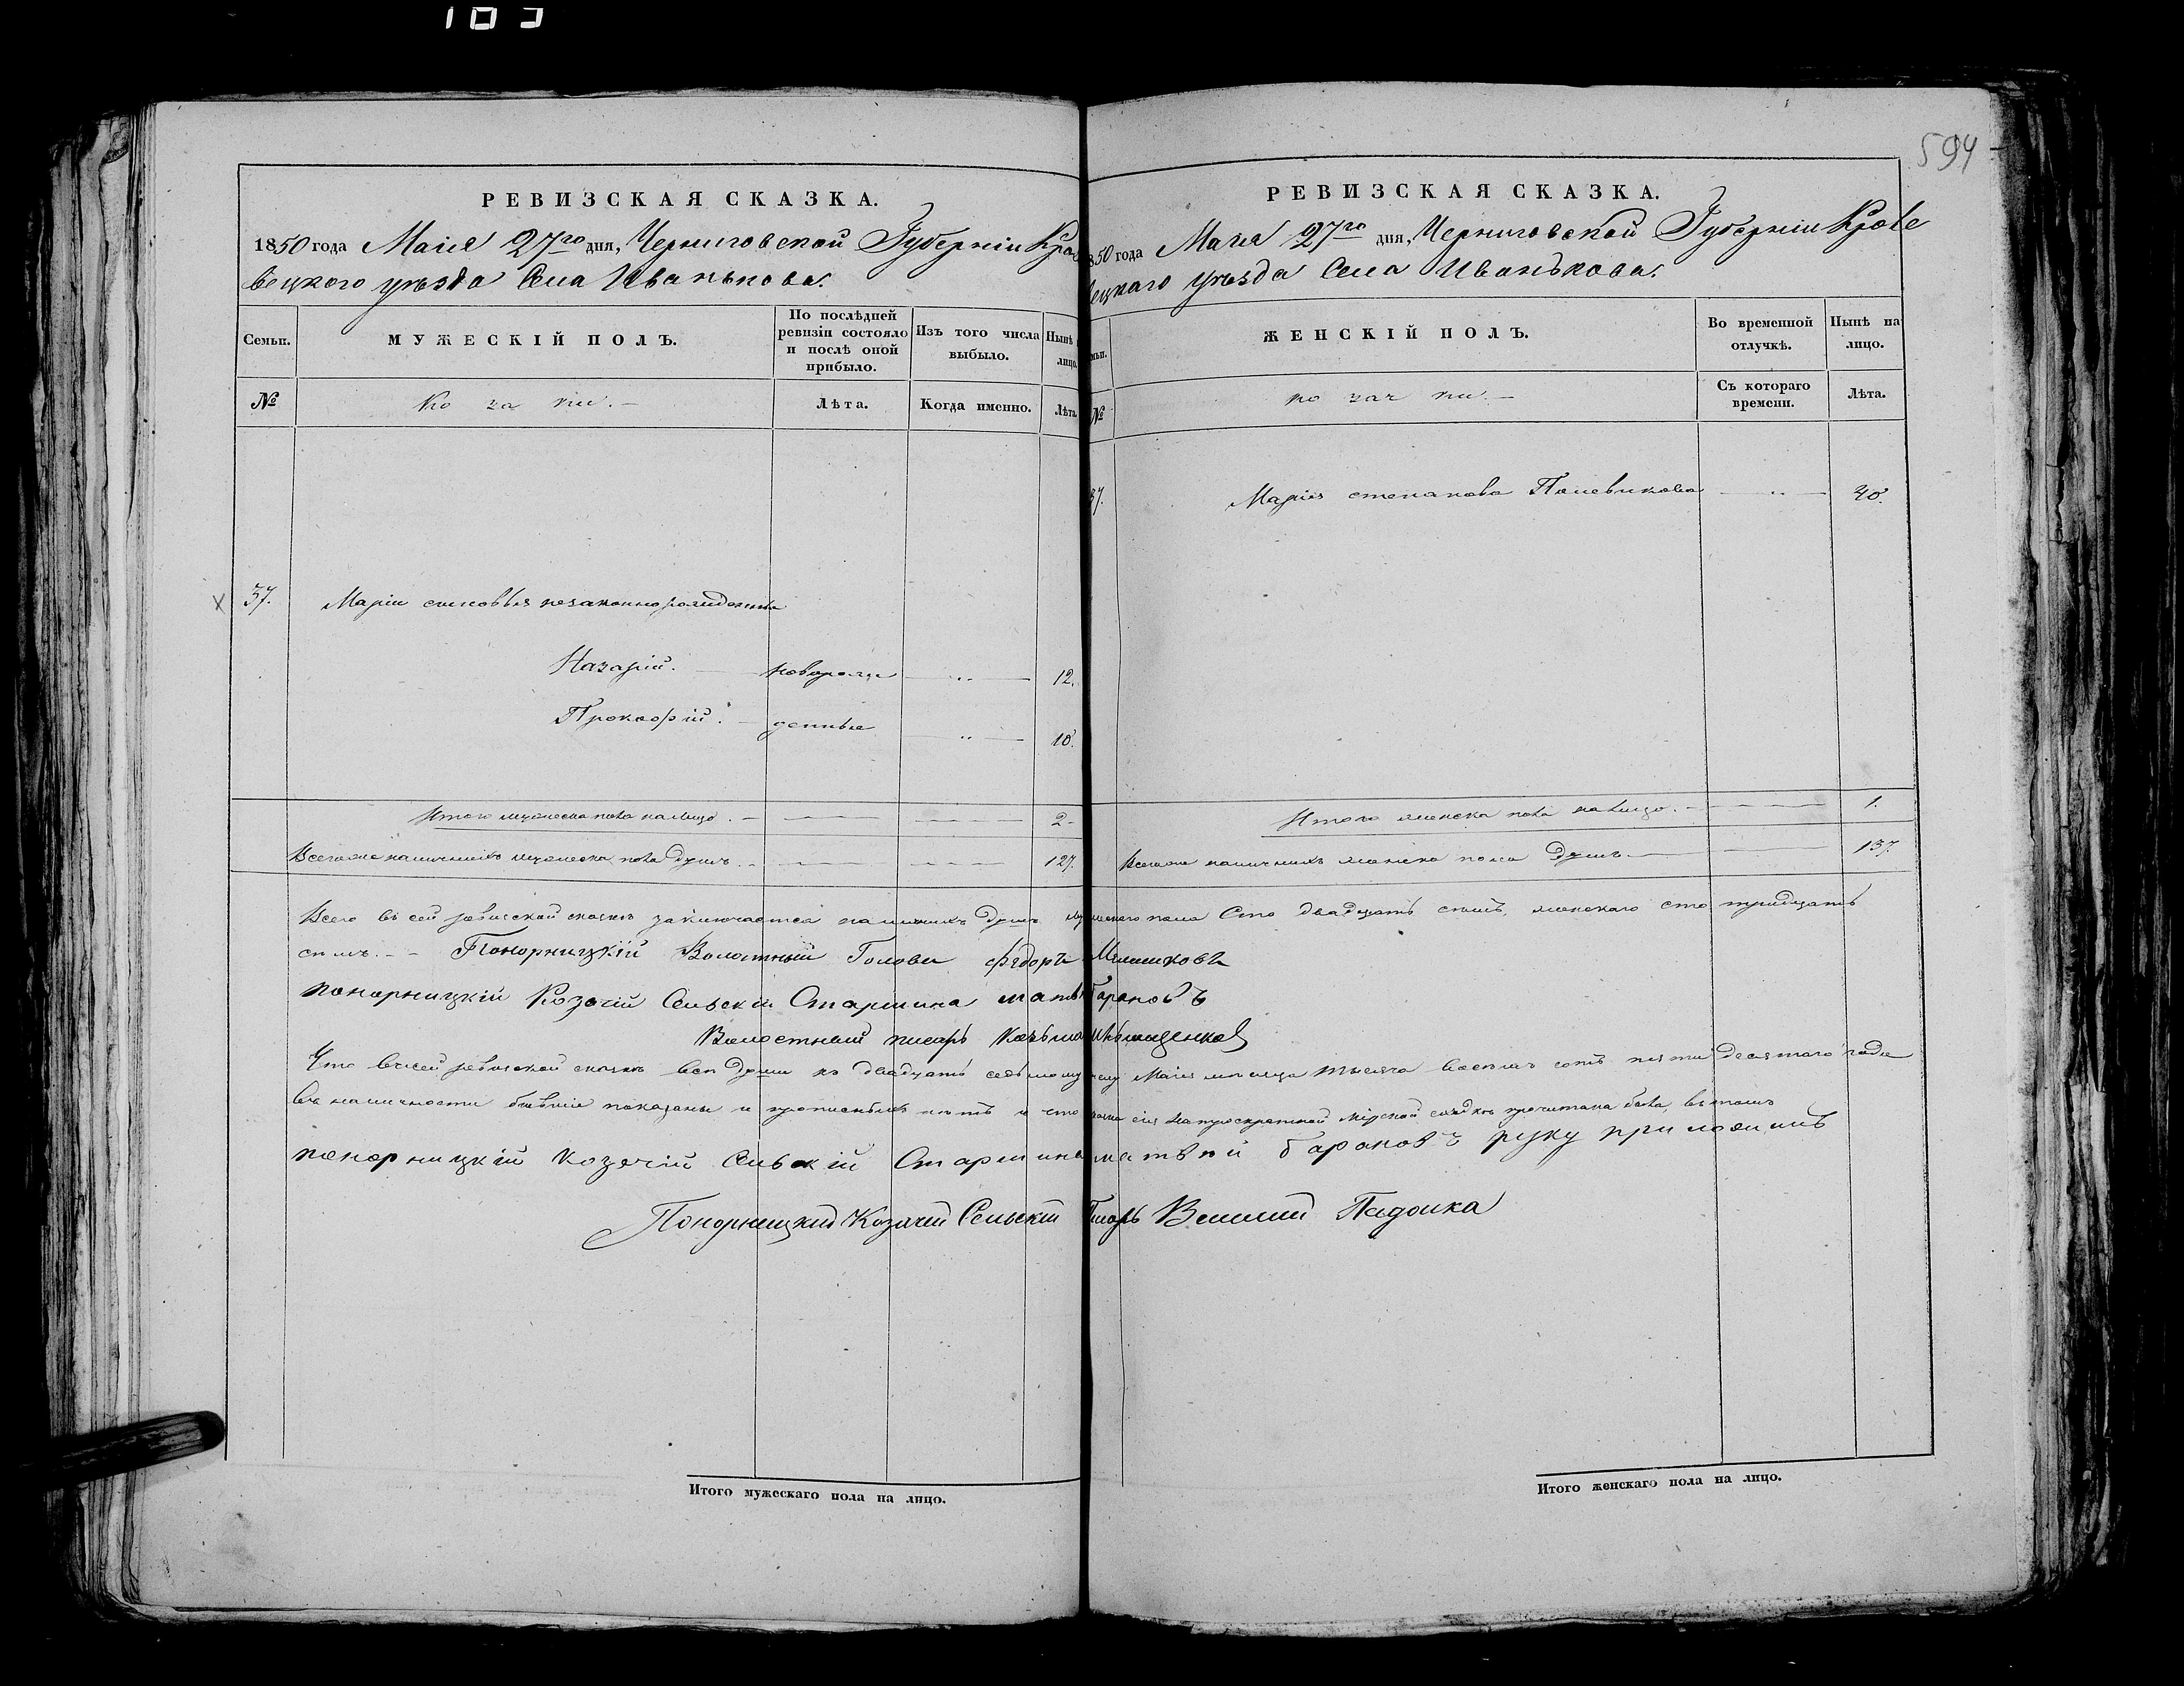 594
РЕВИЗСКАЯ СКАЗКА.
1850 года Маія 27го дня, Черниговской Губерніи Кро
вецкого уѣзда Села Иванькова.
Семьи.
МУЖЕСКІЙ ПОЛЪ.
По послѣдней ревизіи состояло и послѣ оной прибыло.
Изъ того числа выбыло.
Нынѣ лицо.
№
Козаки.
Лѣта.
Когда именно.
Лѣта.
37.
Маріи сыновья незаконнорожденные
Назарій. новорож 12.
Прокофій. денные 10.
Итого мужеска пола налицо. 2
Всего же наличныхъ мужеска пола душъ 127.
РЕВИЗСКАЯ СКАЗКА.
850 года Маія 27го дня, Черниговской Губерніи Кроле
вецкаго уѣзда Села Иванькова.
мьи.
ЖЕНСКІЙ ПОЛЪ.
Во временной отлучкѣ.
Нынѣ на лицо.
№
козачки.
Съ котораго времени.
Лѣта.
37.
Марія степанова Полевикова 40.
Итого женска пола налицо. 1.
Всего же наличныхъ женска пола душъ 137.
Всего въ сей ревизской сказкѣ заключается наличныхъ душъ мужескаго пола Сто двадцать семь, женскаго сто тридцать
семь. Понорницкій Волостный Голова Федоръ
понорницкій Козачій Сельскій Старшина матвѣй барановъ
Волостный писарь Козьма
Что въ сей ревизской сказкѣ всѣ души къ двадцать седьмому числу Маія мѣсяца тысяча восемь сотъ пятидесятого года
въ наличности бывшіе показаны и прописныхъ нѣтъ и что сказка сія на троекратной мірской сходкѣ прочитана была, въ томъ
понорницкій козачій Сельскій Старшина матвѣй барановъ руку приложилъ
Понорницкій Козачій Сельскій Писарь
Итого мужескаго пола на лицо.
Итого женскаго пола на лицо.